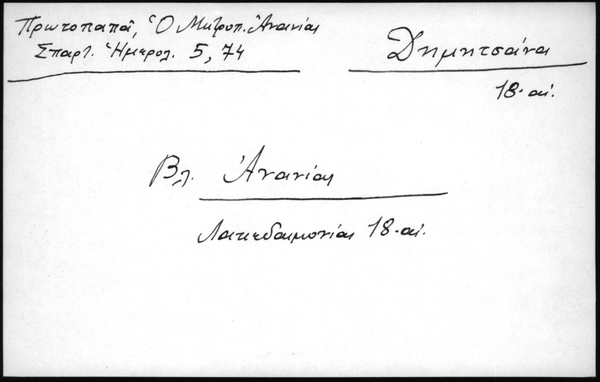 Πρωτοπαπᾶ, Ὁ Μητροπ. Ἀνανίας
Σπαρτ. Ἡμερολ. 5, 74
Δημητσάνα
18. αἰ.
Βλ. Ἀνανίας
Λακεδαιμονίας 18. αἰ.